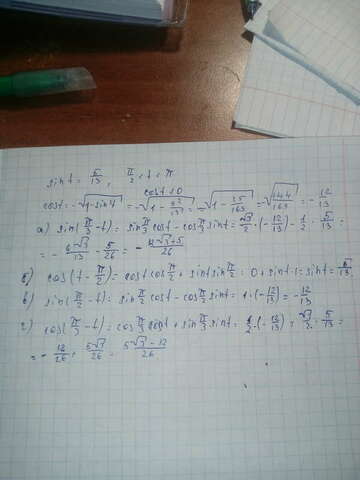 sin t = 5/13, π/2 < t < π
cos t < 0
cos t = -√(1 - sin t) = -√(1 - 5²/13²) = -√(1 - 25/169) = -√(144/169) = -12/13
а) sin(π/3 - t) = sin π/3 cos t - cos π/3 sin t = √3/2 · (-12/13) - 1/2 · 5/13 =
= -6√3/13 - 5/26 = -(12√3+5)/26
б) cos(t - π/2) = cos t cos π/2 + sin t sin π/2 = 0 + sin t · 1 = sin t = 5/13
в) sin(π/2 - t) = sin π/2 cos t - cos π/2 sin t = 1 · (-12/13) = -12/13
г) cos(π/3 - t) = cos π/3 cos t + sin π/3 sin t = 1/2 · (-12/13) + √3/2 · 5/13 =
= -12/26 + 5√3/26 = (5√3 - 12)/26